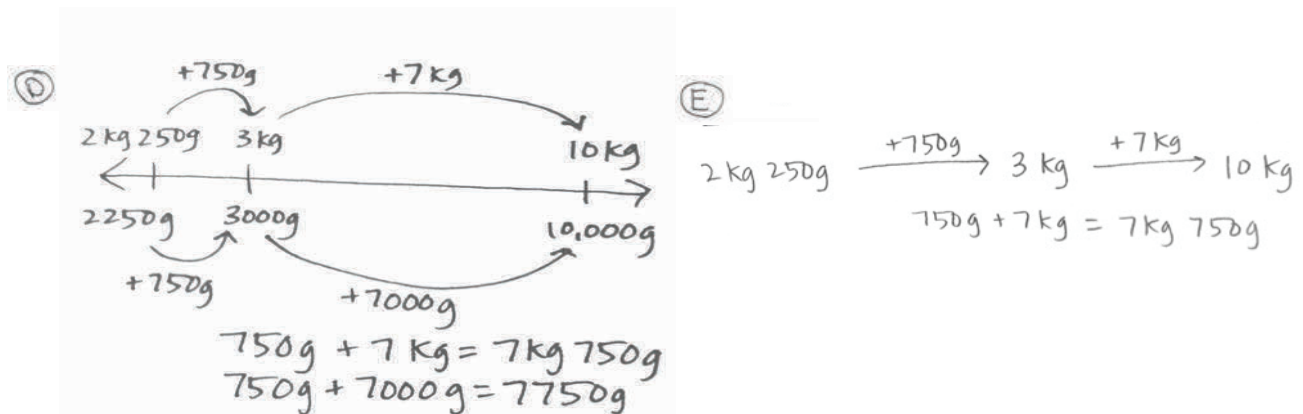 D
+750g +7kg
2kg 250g 3kg 10kg
2250g 3000g 10,000g
+750g +7000g
750g + 7kg = 7kg 750g
750g + 7000g = 7750g
E
+750g +7kg
2kg 250g 3kg 10kg
750g + 7kg = 7kg 750g